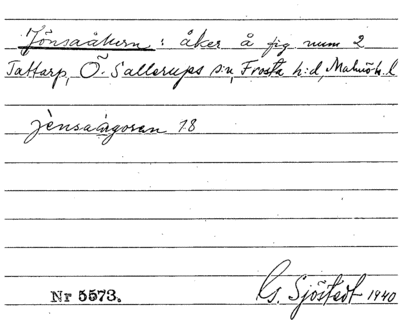 Jönsaåkern: åker å fig num 2
Tattarp, Ö. Sallerups s:n, Frosta h:d, Malmöh. l
jènsaágoran 18
Nr 5573.
G. Sjöstedt 1940